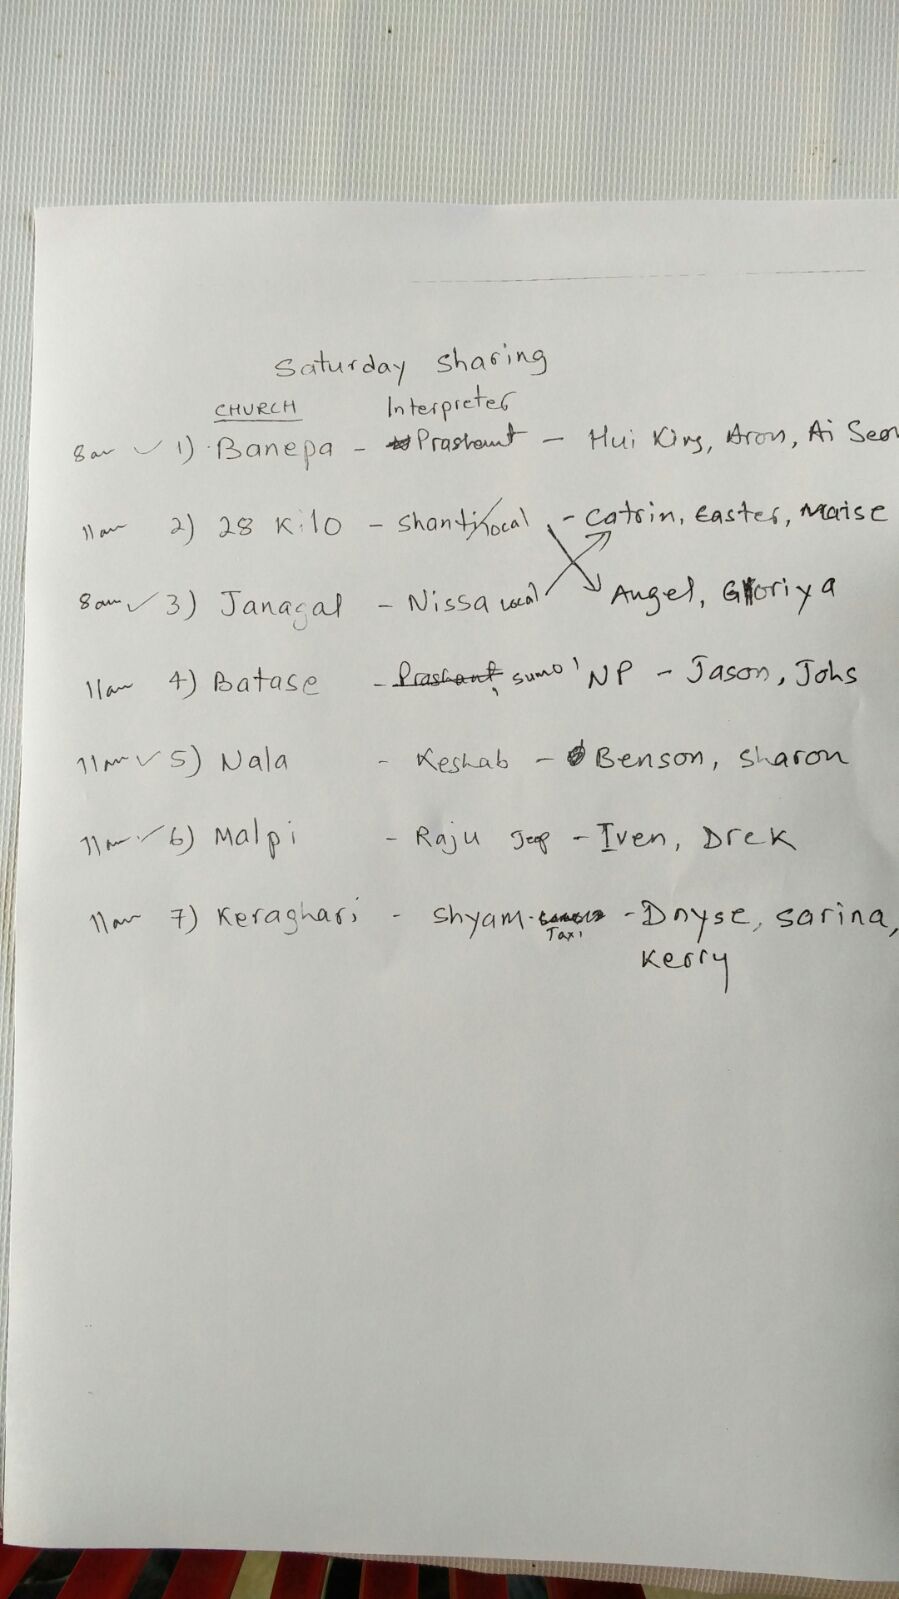 Saturday Sharing
CHURCH Interpreter
8am ✓ 1) Banepa - Prashant - Hui King, Aron, Ai Seon
11am 2) 28 Kilo - Shanti/local - Catrin, Easter, Maise
8am ✓ 3) Janagal - Nissa local Angel, Gloriya
11am 4) Batase - Prashant, sumo' NP - Jason, Johs
11am ✓ 5) Nala - Keshab - Benson, Sharon
11am ✓ 6) Malpi - Raju Jeep - Iven, Drek
11am 7) Keraghari - Shyam - Dnyse, Sarina,
Taxi
Kerry